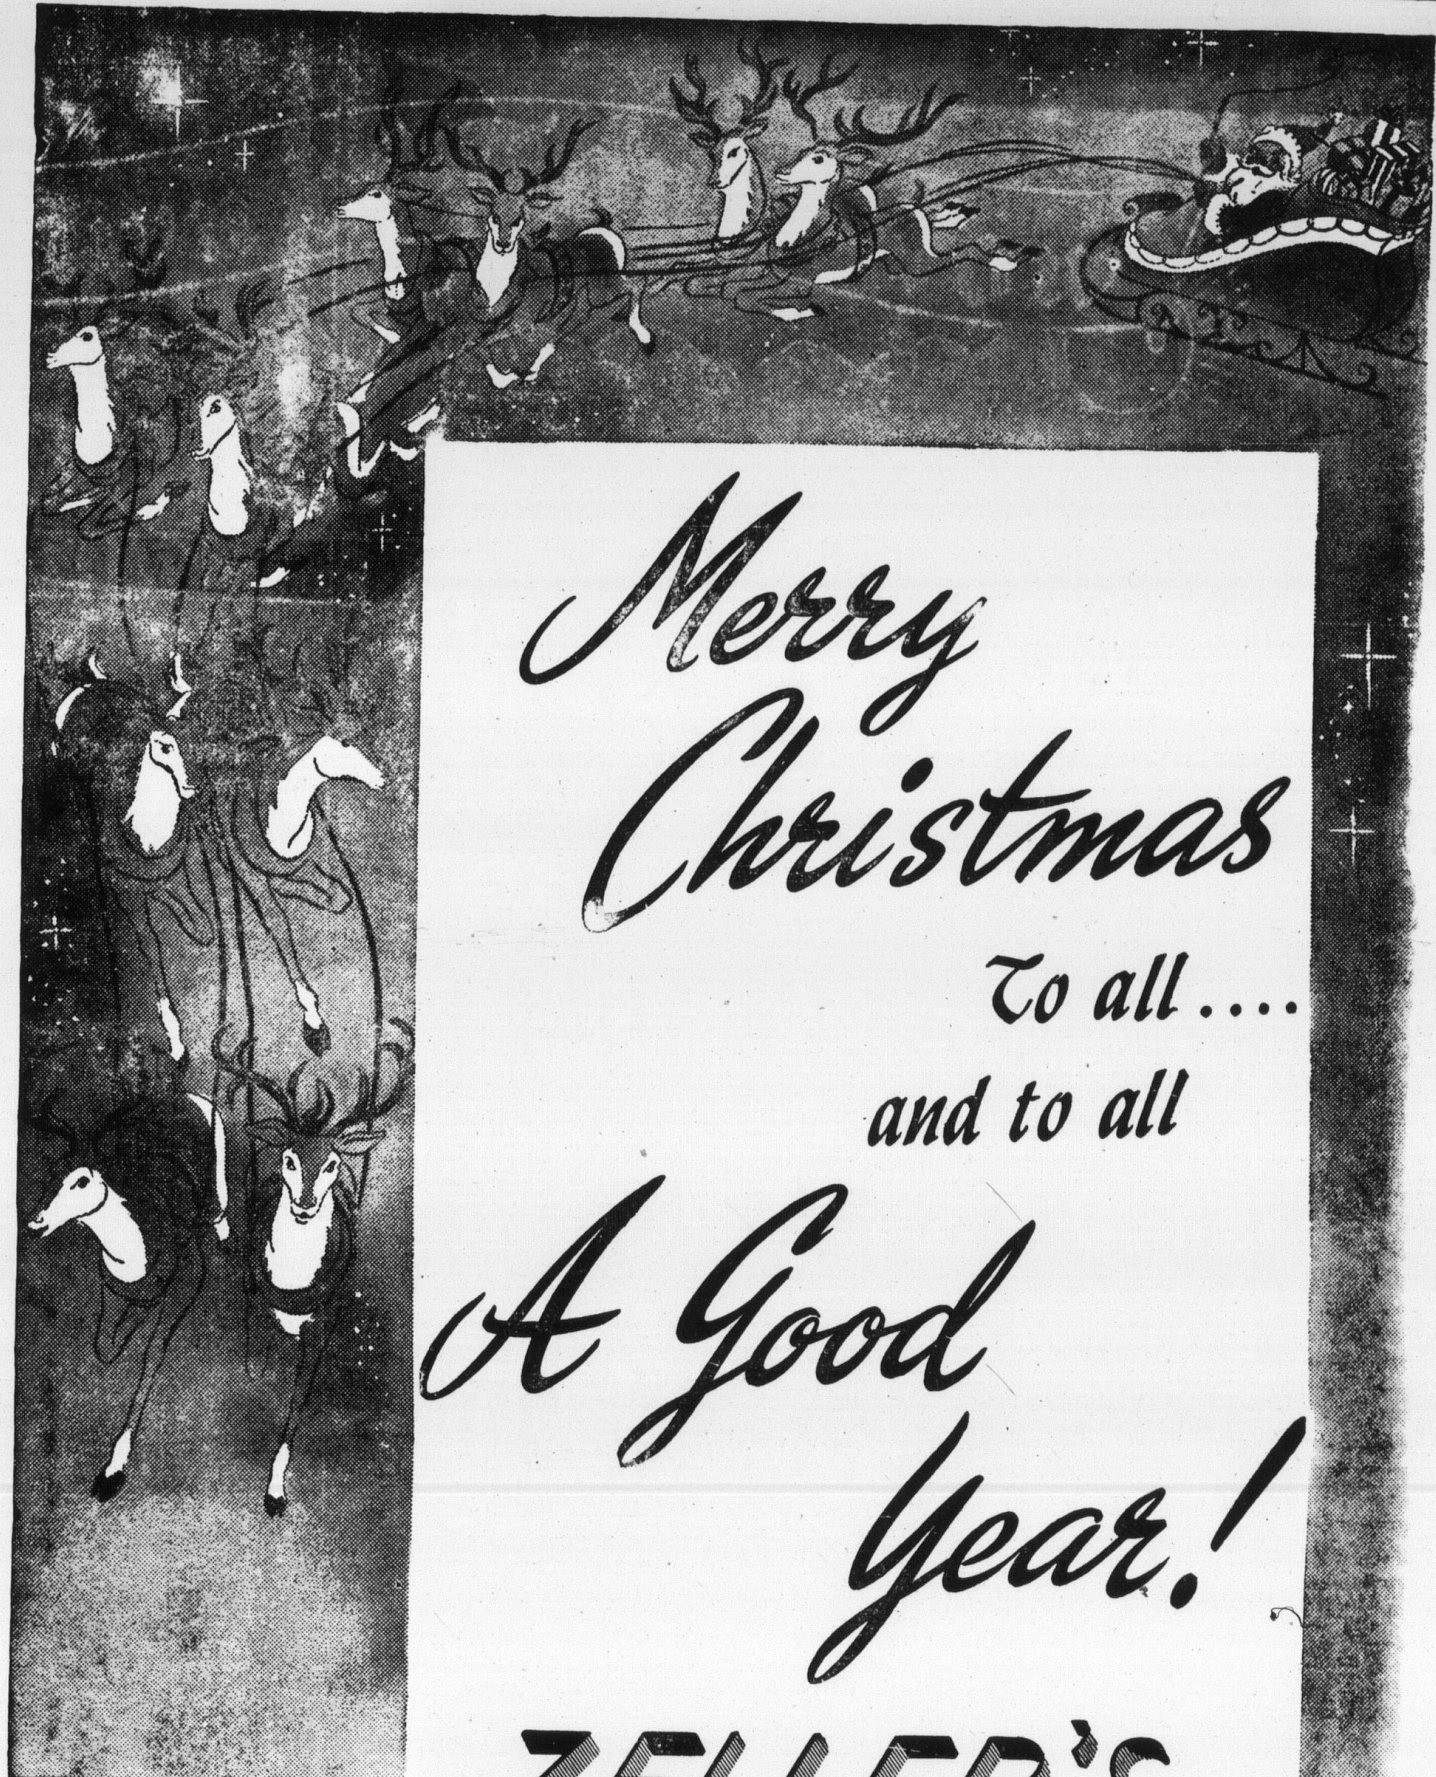 Merry
Christmas
To all....
and to all
A Good
Year!
ZELLER'S